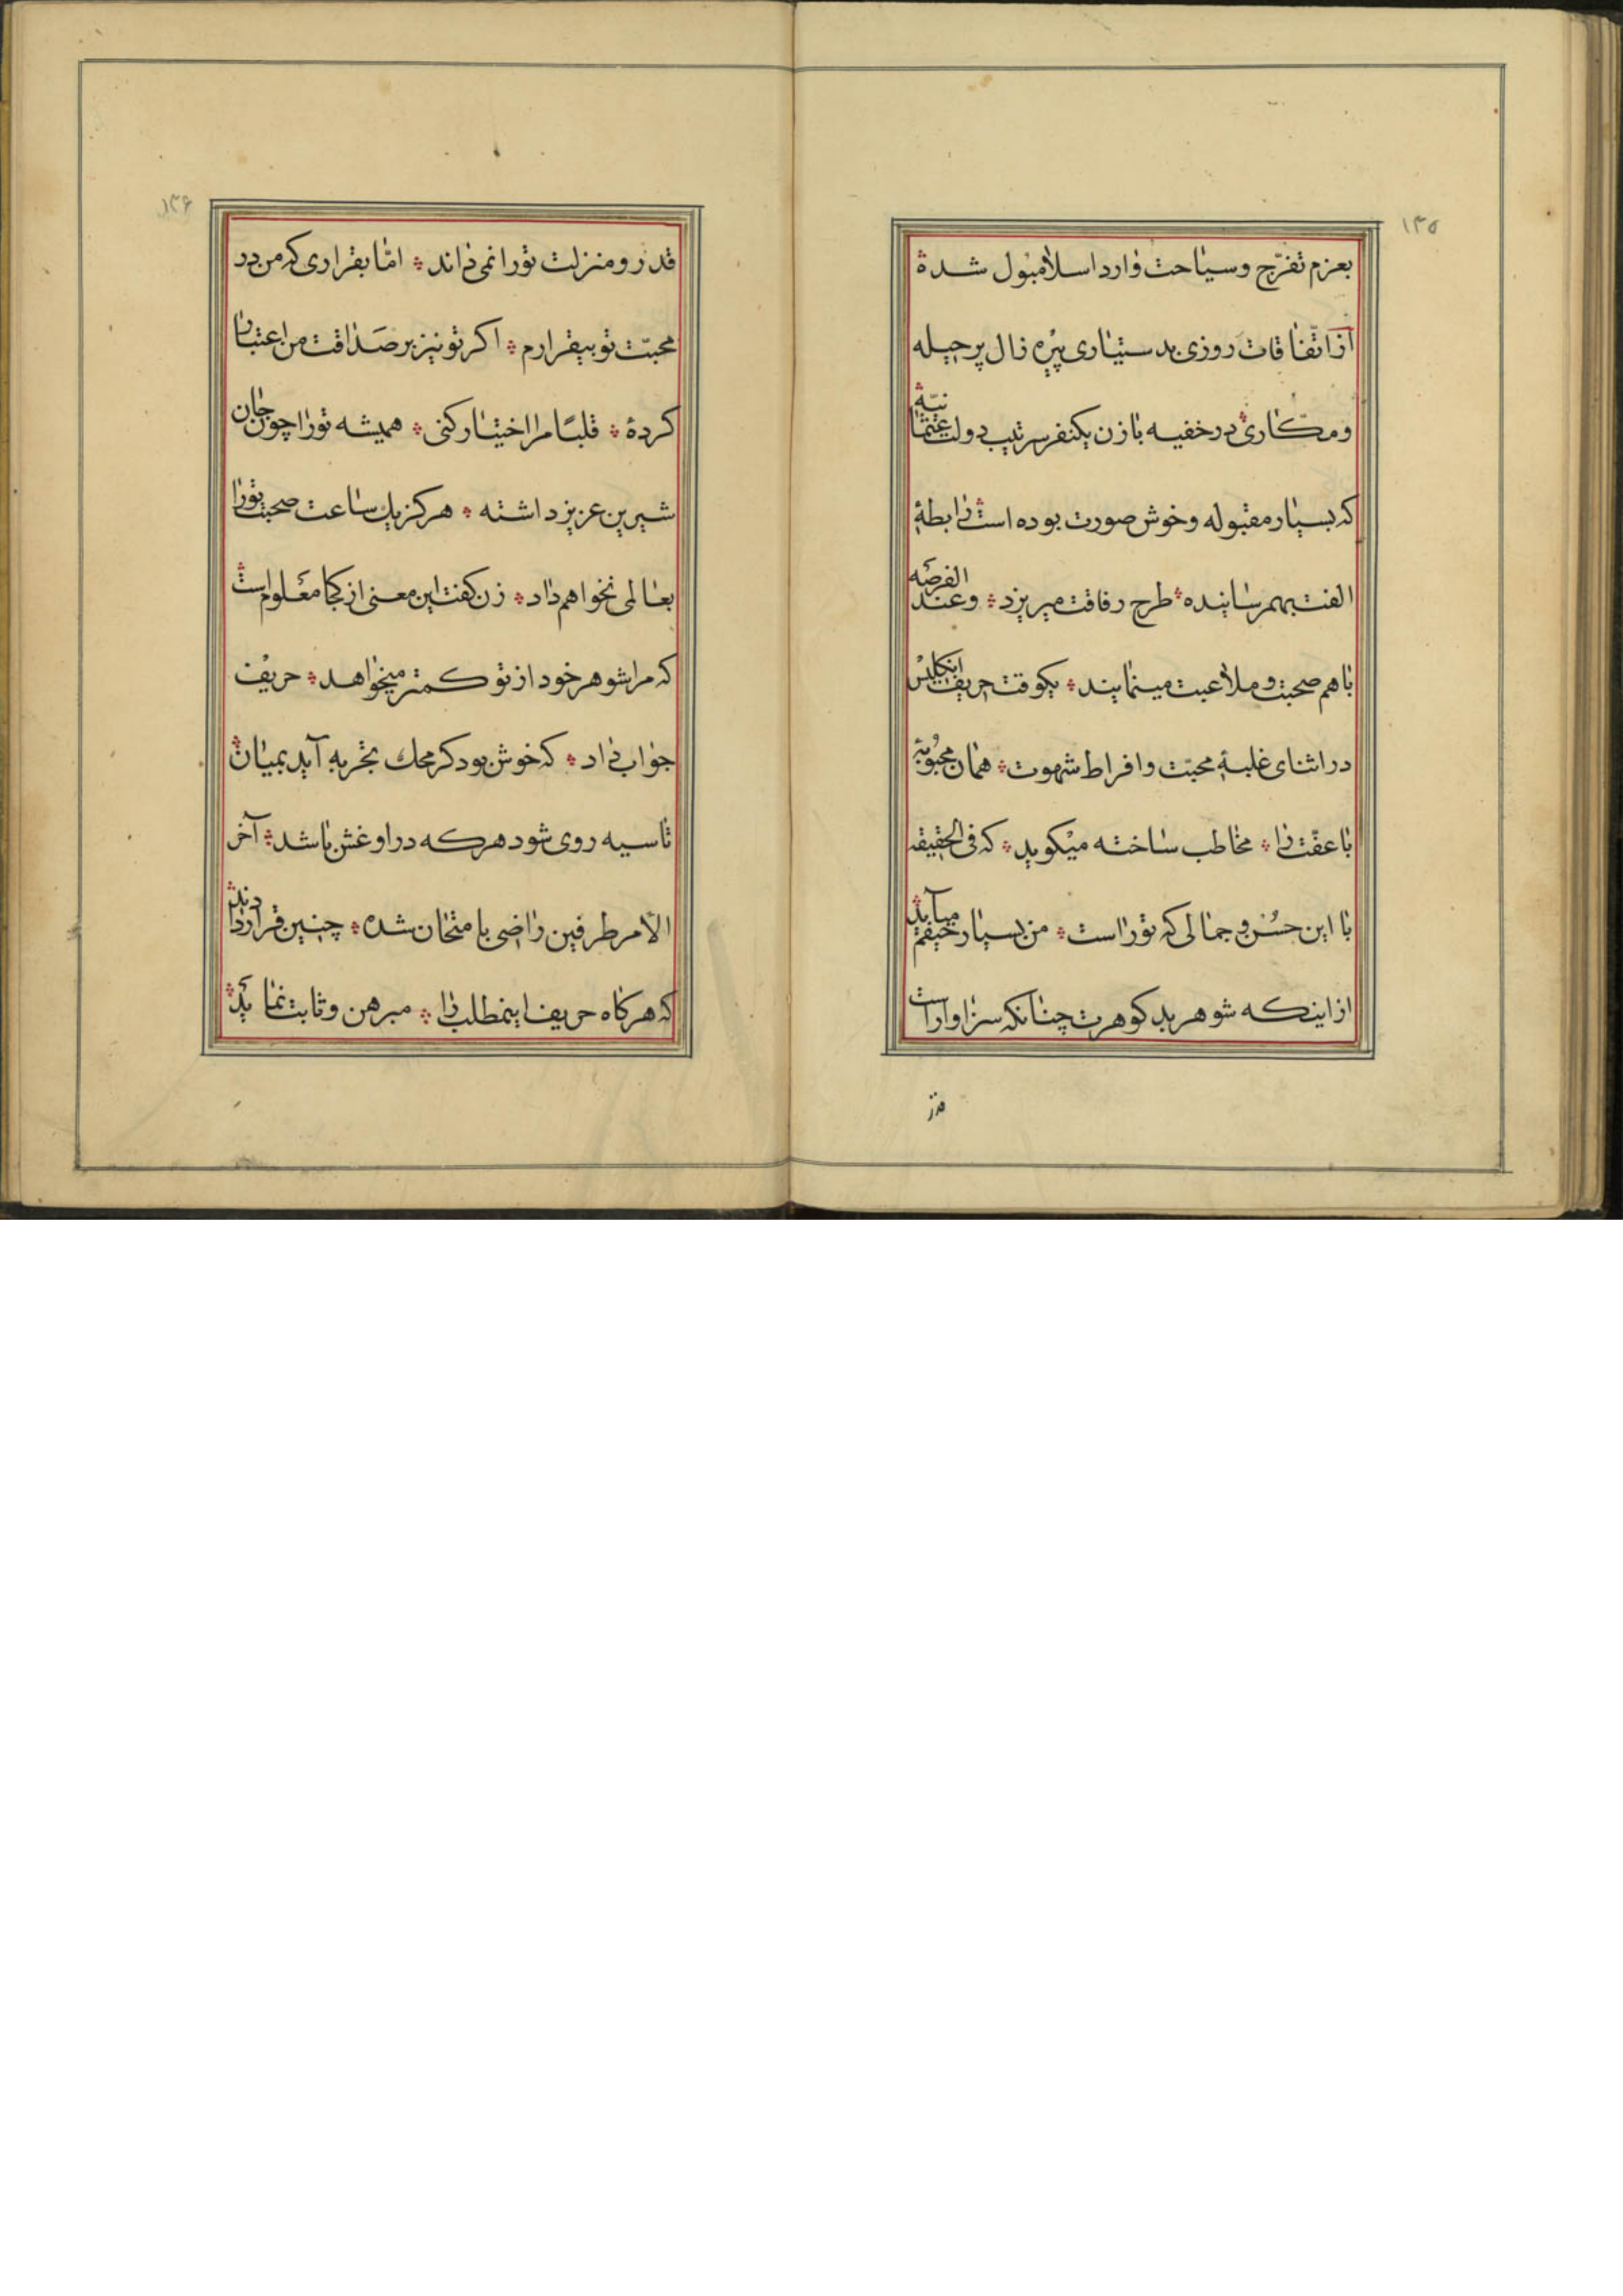 ۱۳۵
بعزم تفرّج وسیاحت وارد اسلامبول شده ؞
از اتّفاقات روزی بدستیاری پیره زال پرحیله
ومکّاری ؞ درخفیه بازن یکنفر سرتیب دولت عثمانیّه ؞
که بسیار مقبوله وخوش صورت بوده است ؞ رابطهٔ
الفت بهم رسانیده ؞ طرح رفاقت میریزد ؞ وعند الفرصه
باهم صحبت و ملاعبت مینمایند ؞ یکوقت حریف انکلیس
در اثنای غلبهٔ محبّت وافراط شهوت ؞ همان محبوبهٔ
با عفّت را ؞ مخاطب ساخته میکوید ؞ که فی الحقیقه
با این حسن و جمالی که تورا است ؞ من بسیار حیفم میآید ؞
از اینکه شوهر بد کوهرت چنانکه سزاوار است
قدر
۱۳۶
قدر و منزلت تورا نمی داند ؞ امّا بقراری که من در
محبّت تو بیقرارم ؞ اکر تو نیز بر صداقت من اعتبار
کرده ؞ قلبًا مرا اختیار کنی ؞ همیشه تورا چون جان
شیرین عزیز داشته ؞ هرکز یك ساعت صحبت تورا
بعالمی نخواهم داد ؞ زن کفت این معنی از کجا معلوم است ؞
که مرا شوهر خود از تو کمتر میخواهد ؞ حریف
جواب داد ؞ که خوش بود کر محك تجربه آید بمیان ؞
تا سیه روی شود هرکه در او غش باشد ؞ آخر
الامر طرفین راضی با متحان شده ؞ چنین قرار دادند ؞
که هرکاه حریف اینمطلب را ؞ مبرهن و ثابت نماید ؞